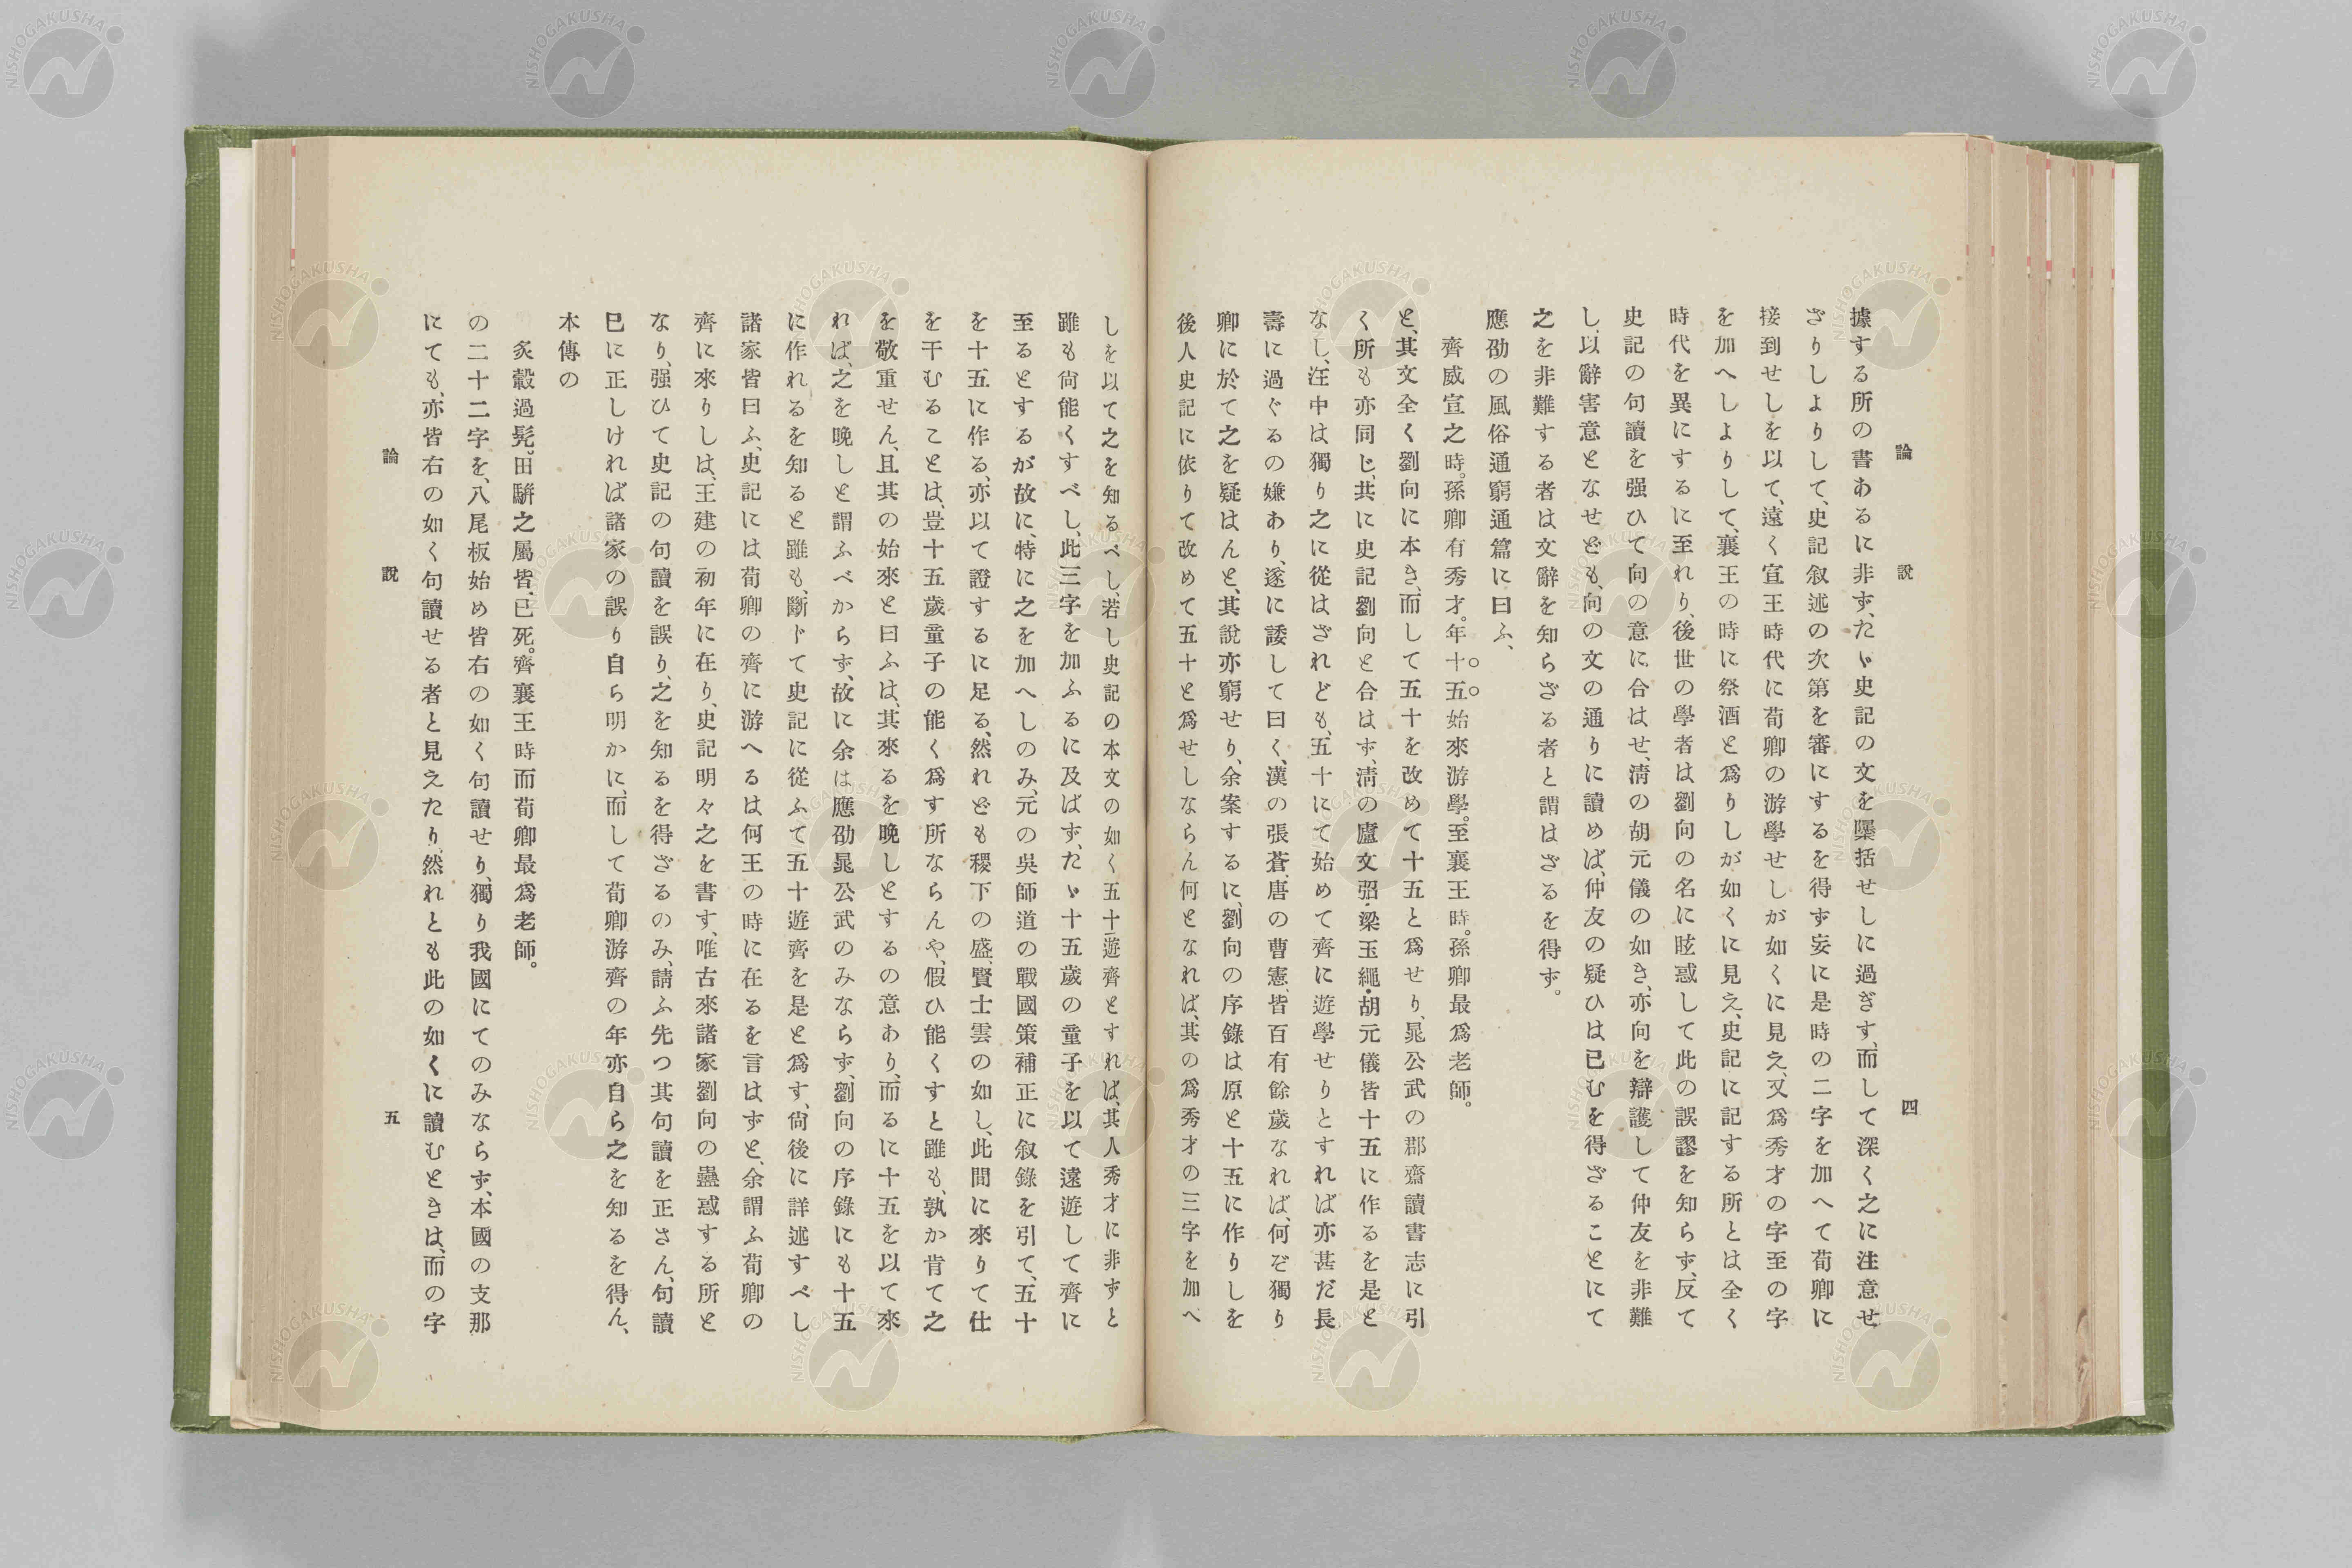 論 說 四
據する所の書あるに非ず、たゞ史記の文を檃括せしに過ぎす、而して深く之に注意せ
ざりしよりして、史記叙述の次第を審にするを得ず妄に是時の二字を加へて荀卿に
接到せしを以て、遠く宣王時代に荀卿の游學せしが如くに見え、又爲秀才の字至の字
を加へしよりして、襄王の時に祭酒と爲りしが如くに見え、史記に記する所とは全く
時代を異にするに至れり、後世の學者は劉向の名に眩惑して此の誤謬を知らず、反て
史記の句讀を强ひて向の意に合はせ、淸の胡元儀の如き、亦向を辯護して仲友を非難
し、以辭害意となせども、向の文の通りに讀めば、仲友の疑ひは已むを得ざることにて
之を非難する者は文辭を知らざる者と謂はざるを得ず。
應劭の風俗通窮通篇に曰ふ、
齊威宣之時。孫卿有秀才。年十五。始來游學。至襄王時。孫卿最爲老師。
と、其文全く劉向に本き、而して五十を改めて十五と爲せり、晁公武の郡齋讀書志に引
く所も亦同じ、共に史記劉向と合はず、淸の盧文弨・梁玉繩・胡元儀皆十五に作るを是と
なし、汪中は獨り之に從はざれども、五十にて始めて齊に遊學せりとすれば亦甚だ長
壽に過ぐるの嫌あり、遂に諉して曰く、漢の張蒼、唐の曹憲、皆百有餘歲なれば、何ぞ獨り
卿に於て之を疑はんと、其說亦窮せり、余案するに、劉向の序錄は原と十五に作りしを
後人史記に依りて改めて五十と爲せしならん何となれば、其の爲秀才の三字を加へ
しを以て之を知るべし、若し史記の本文の如く五十遊齊とすれば、其人秀才に非ずと
雖も尙能くすべし、此三字を加ふるに及ばず、たゞ十五歲の童子を以て遠遊して齊に
至るとするが故に、特に之を加へしのみ、元の吳師道の戰國策補正に叙錄を引て、五十
を十五に作る、亦以て證するに足る、然れども稷下の盛、賢士雲の如し、此間に來りて仕
を干むることは、豈十五歲童子の能く爲す所ならんや、假ひ能くすと雖も、孰か肯て之
を敬重せん、且其の始來と曰ふは、其來るを晚しとするの意あり、而るに十五を以て來
れば、之を晚しと謂ふべからず、故に余は應劭晁公武のみならず、劉向の序錄にも十五
に作れるを知ると雖も、斷ドて史記に從ふて五十遊齊を是と爲す、尙後に詳述すべし
諸家皆曰ふ、史記には荀卿の齊に游へるは何王の時に在るを言はずと、余謂ふ荀卿の
齊に來りしは、王建の初年に在り、史記明々之を書す、唯古來諸家劉向の蠱惑する所と
なり、强ひて史記の句讀を誤り、之を知るを得ざるのみ、請ふ先つ其句讀を正さん、句讀
已に正しければ諸家の誤り自ら明かに、而して荀卿游齊の年亦自ら之を知るを得ん、
本傳の
炙轂過髡。田騈之屬皆已死。齊襄王時而荀卿最爲老師。
の二十二字を、八尾板始め皆右の如く句讀せり、獨り我國にてのみならず、本國の支那
にても、亦皆右の如く句讀せる者と見えたり、然れとも此の如くに讀むときは、而の字
論 說 五